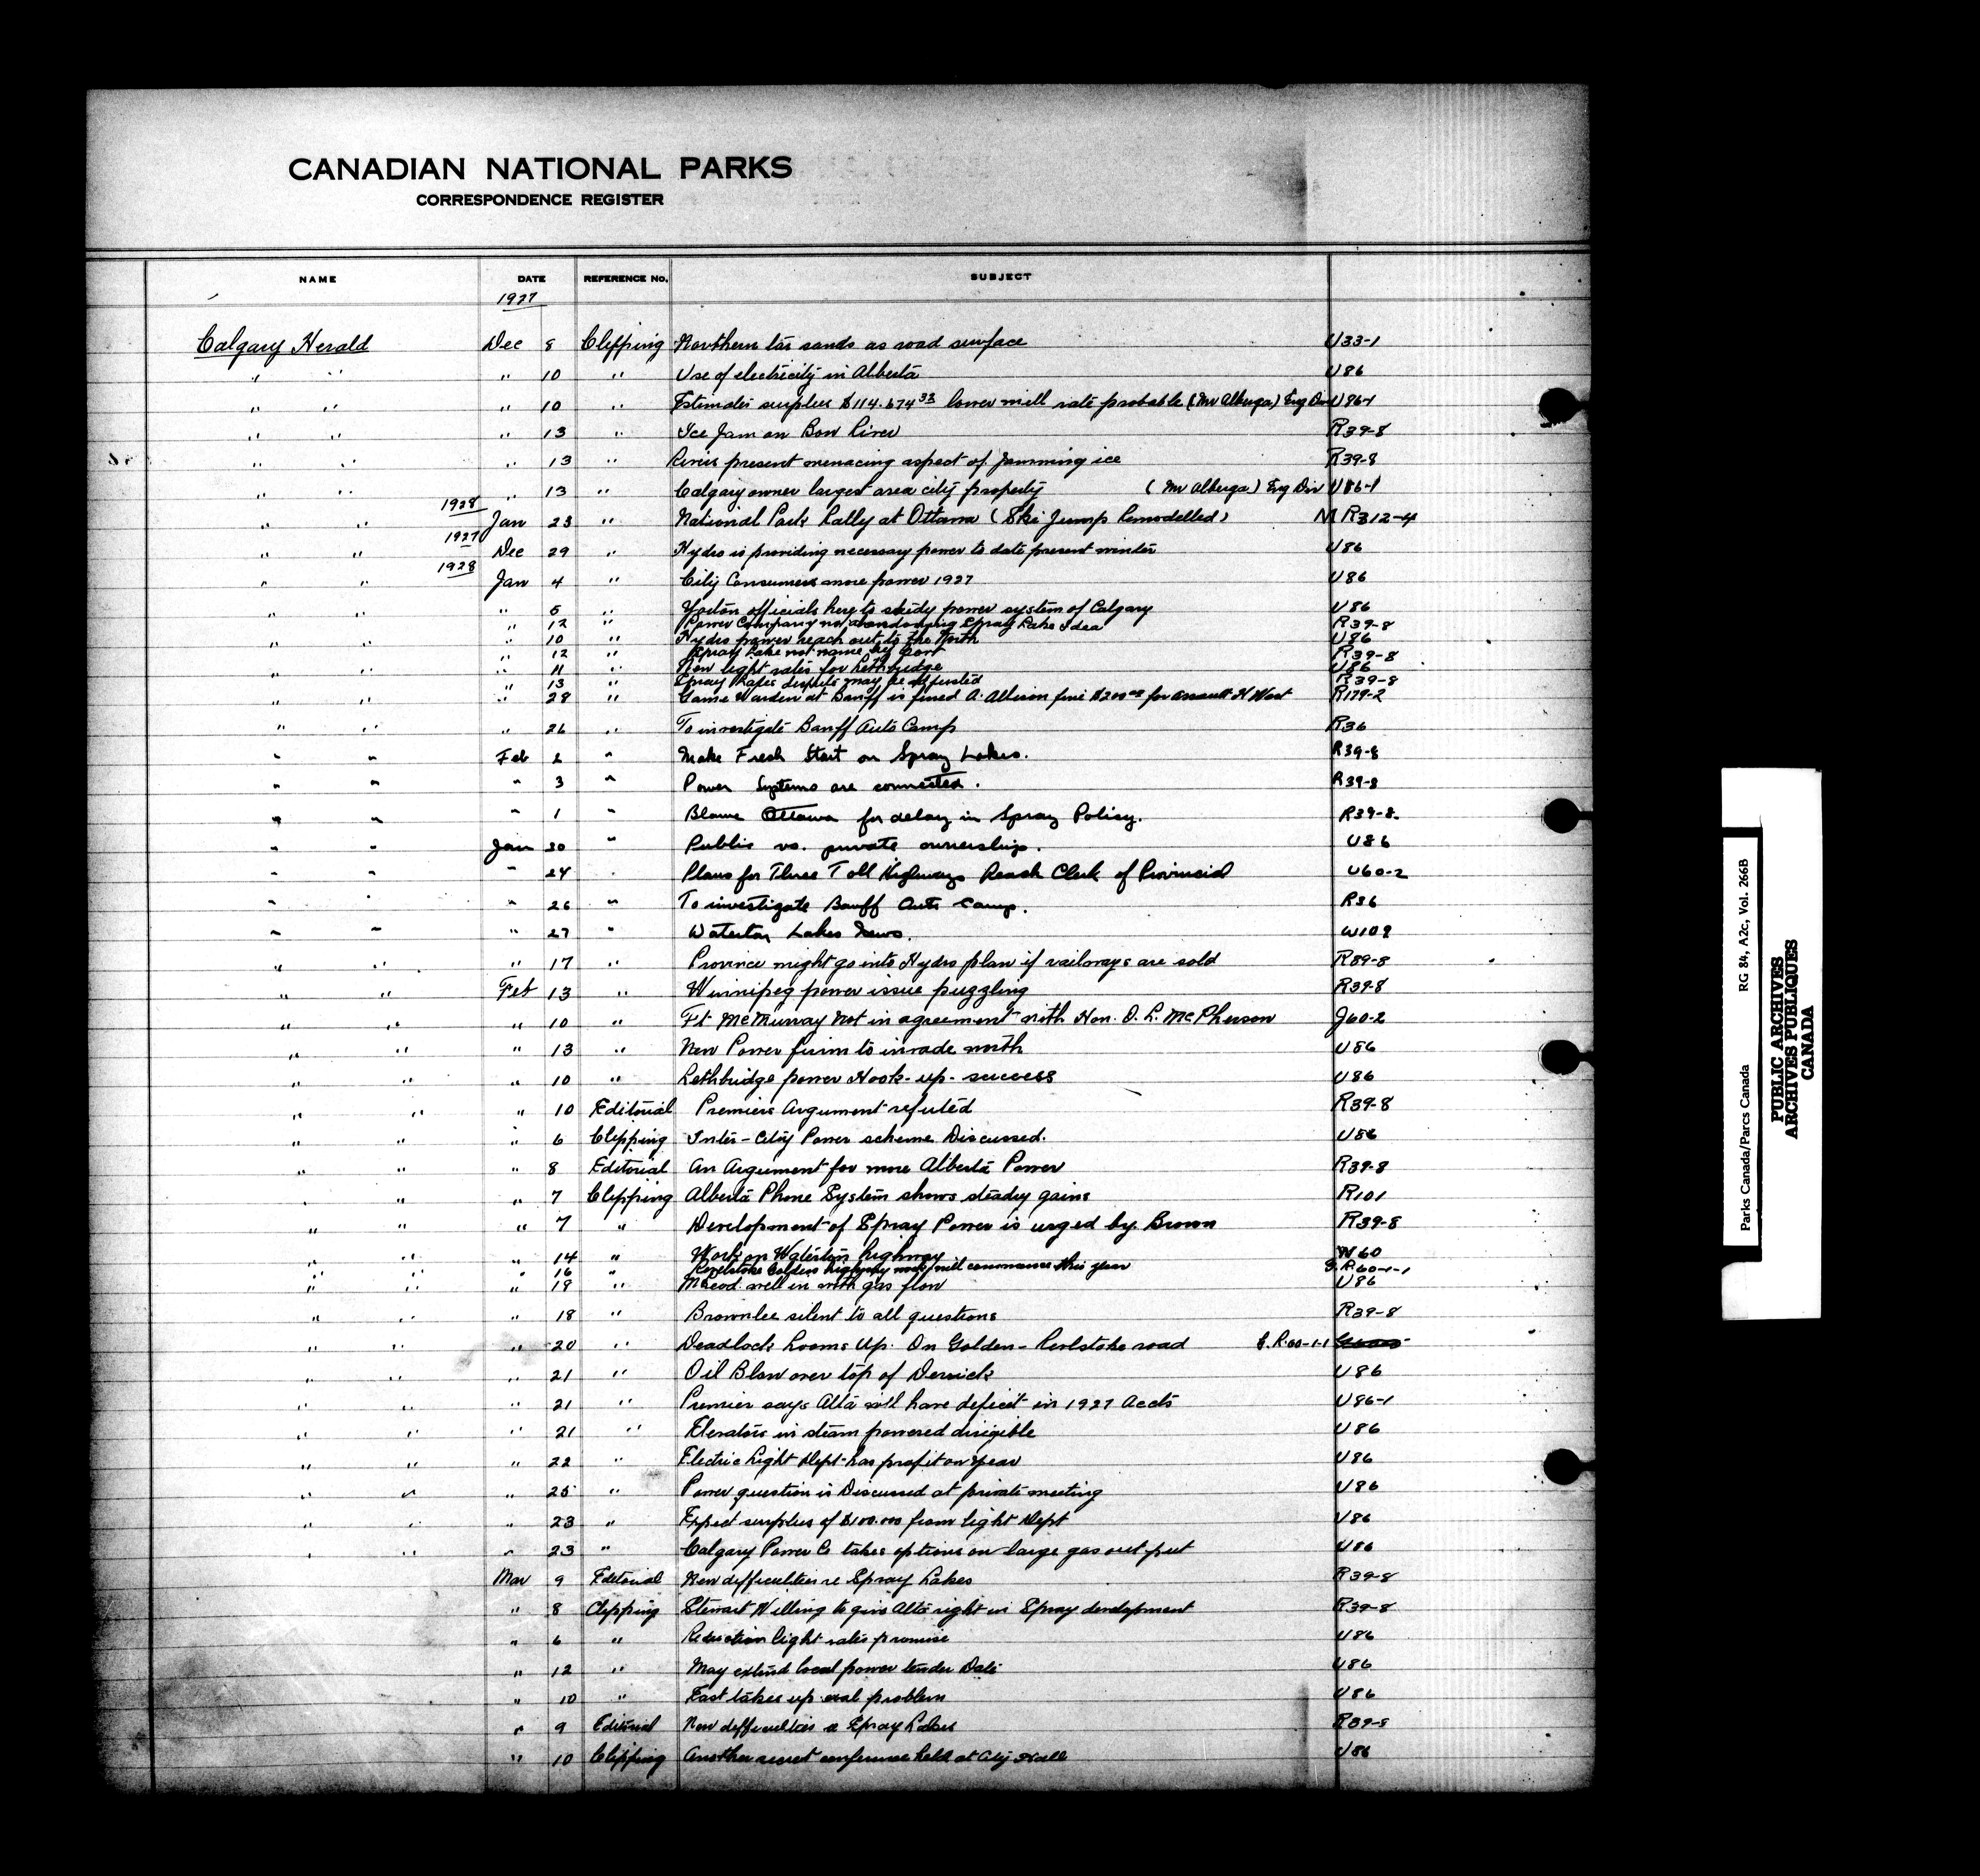 CANADIAN NATIONAL PARKS
CORRESPONDENCE REGISTER
NAME DATE REFERENCE No. SUBJECT
1927
Calgary Herald Dec 8 Clipping Northern tar sands as road surface U33-1
" " " 10 " Use of electricity in Alberta U86
" " " 10 " Estimates surplus $114.674 33 lower mill rate probable (Mr Alberga) Eng Div U86-1
" " " 13 " Ice Jam on Bow River R39-8
" " " 13 " Rivers present menacing aspect of jamming ice R39-8
" " " 13 " Calgary owner largest area city property (Mr Alberga) Eng Div U86-1
" " 1928 Jan 23 " National Park Rally at Ottawa (Ski Jump Remodelled) M R312-4
" " 1927 Dec 29 " Hydro is providing necessary power to date present winter U86
" " 1928 Jan 4 " City Consumers more power 1927 U86
" " " 5 " officials here to study power system of Calgary U86
" 12 " Power Company not abandoning Spray Lake Idea R39-8
" 10 " Hydro power reach out to the North U86
" 12 " Spray Lake not name by R39-8
" " " 11 " New light rates for Lethbridge U86
" 13 " Spray Lakes dispute may be adjusted R39-8
" " " 28 " Game Warden at Banff is fined A. Allison fine $200 for assault H West R179-2
" " " 26 " To investigate Banff Auto Camp R36
" " Feb 2 " Make Fresh Start on Spray Lakes. R39-8
" " " 3 " Power Systems are connected. R39-8
" " " 1 " Blame Ottawa for delay in Spray Policy. R39-8.
" " Jan 30 " Public vs. private ownership. U86
" " " 24 " Plans for Three Toll Highways Reach Clerk of Provincial U60-2
" " " 26 " To investigate Banff Auto Camp. R36
" " " 27 " Waterton Lakes News. W109
" " " 17 " Province might go into Hydro plan if railways are sold R39-8
" " Feb 13 " Winnipeg power issue puzzling R39-8
" " " 10 " Ft McMurray Not in agreement with Hon. O. L. McPherson J60-2
" " " 13 " New Power firm to invade north U86
" " " 10 " Lethbridge power Hook-up- success U86
" " " 10 Editorial Premiers Argument refuted R39-8
" " " 6 Clipping Inter-City Power scheme Discussed. U86
" " " 8 Editorial An Argument for more Alberta Power R39-8
" " " 7 Clipping Alberta Phone System shows steady gains R101
" " " 7 " Development of Spray Power is urged by Brown R39-8
" " " 14 " Work on Waterton highway W60
" " " 16 " Revelstoke Golden highway work will commence this year G.R.60-1-1
" " " 19 " McLeod well in with gas flow U86
" " " 18 " Brownlee silent to all questions R39-8
" " " 20 " Deadlock Looms Up. On Golden-Revlstoke road G.R.60-1-1
" " " 21 " Oil Blow over top of Derrick U86
" " " 21 " Premier says Alta will have deficit in 1927 Accts U86-1
" " " 21 " Elevators in steam powered dirigible U86
" " " 22 " Electric Light Dept has profit on year U86
" " " 25 " Power question is Discussed at private meeting U86
" " " 23 " Expect surplus of $100.000 from light Dept U86
" " " 23 " Calgary Power Co takes options on large gas out put U86
Mar 9 Editorial New difficulties re Spray Lakes R39-8
" 8 Clipping Stewart Willing to give Alta right in Spray development R39-8
" 6 " Reduction light rates promise U86
" 12 " May extend local power tender Date U86
" 10 " East takes up coal problem U86
" 9 Editorial New difficulties re Spray Lakes R39-8
" 10 Clipping Another secret conference held at City Hall U86
Parks Canada/Parcs Canada RG 84, A2c, Vol. 266B
PUBLIC ARCHIVES
ARCHIVES PUBLIQUES
CANADA